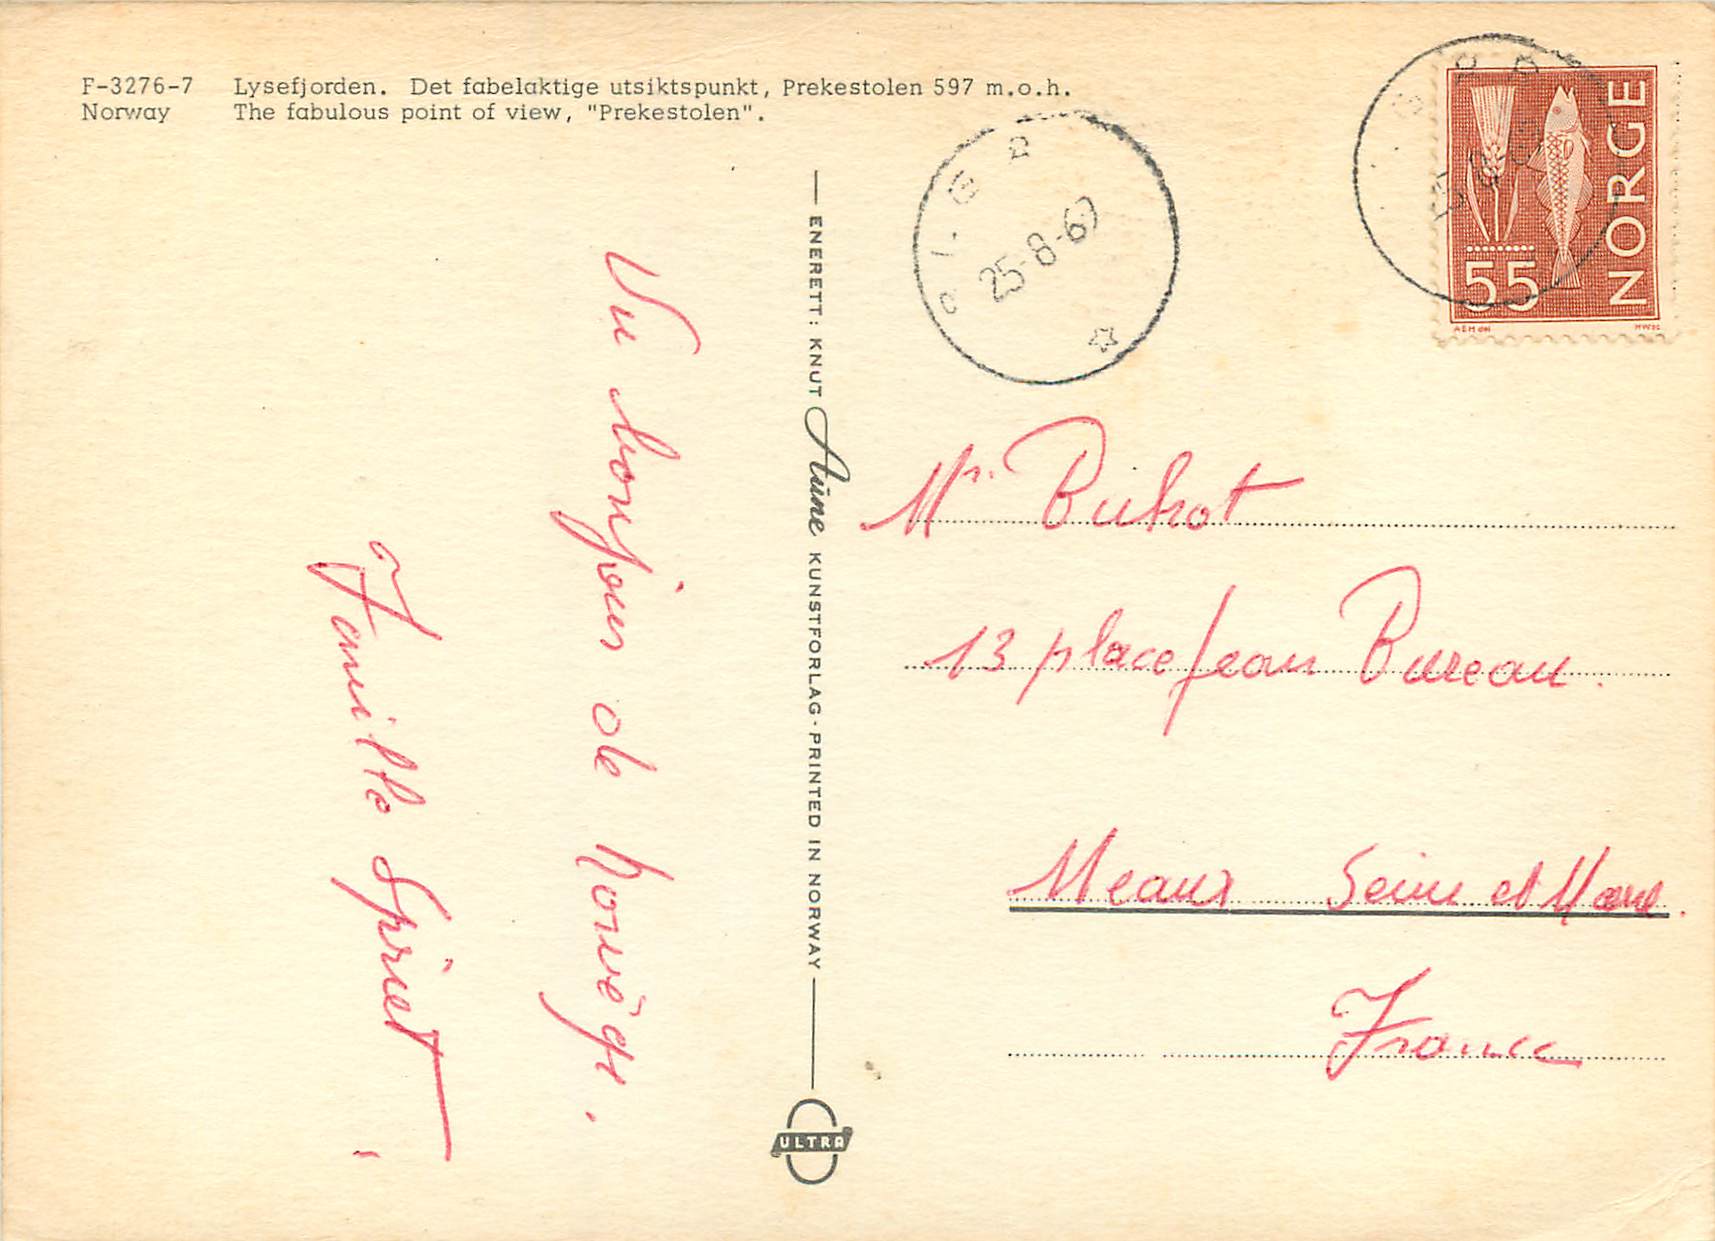 F-3276-7 Lysefjorden. Det fabelaktige utsiktspunkt, Prekestolen 597 m.o.h.
Norway The fabulous point of view, "Prekestolen".
Un bonjour de Norvège.
Famille Spriet
ENERETT: KNUT Aune KUNSTFORLAG · PRINTED IN NORWAY
ULTRA
25-8-67
NORGE
55
Mr. Buhot
13 place Jean Bureau.
Meaux Seine et Marne.
France